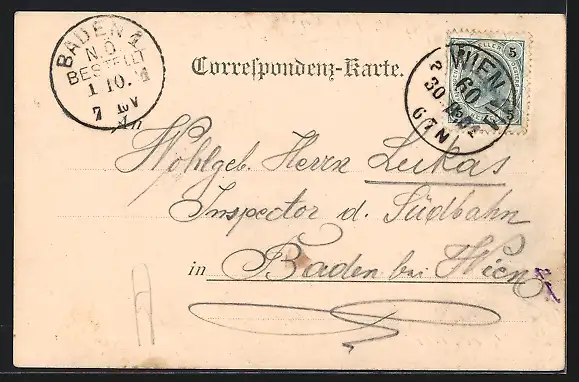 BADEN 1
N.Ö.
BESTELLT
1 10.
7
Correspondenz-Karte.
5
WIEN
60
30
6 7 N
An
Wohlgeb. Herrn Lukas
Inspector d. Südbahn
in Baden bei Wien